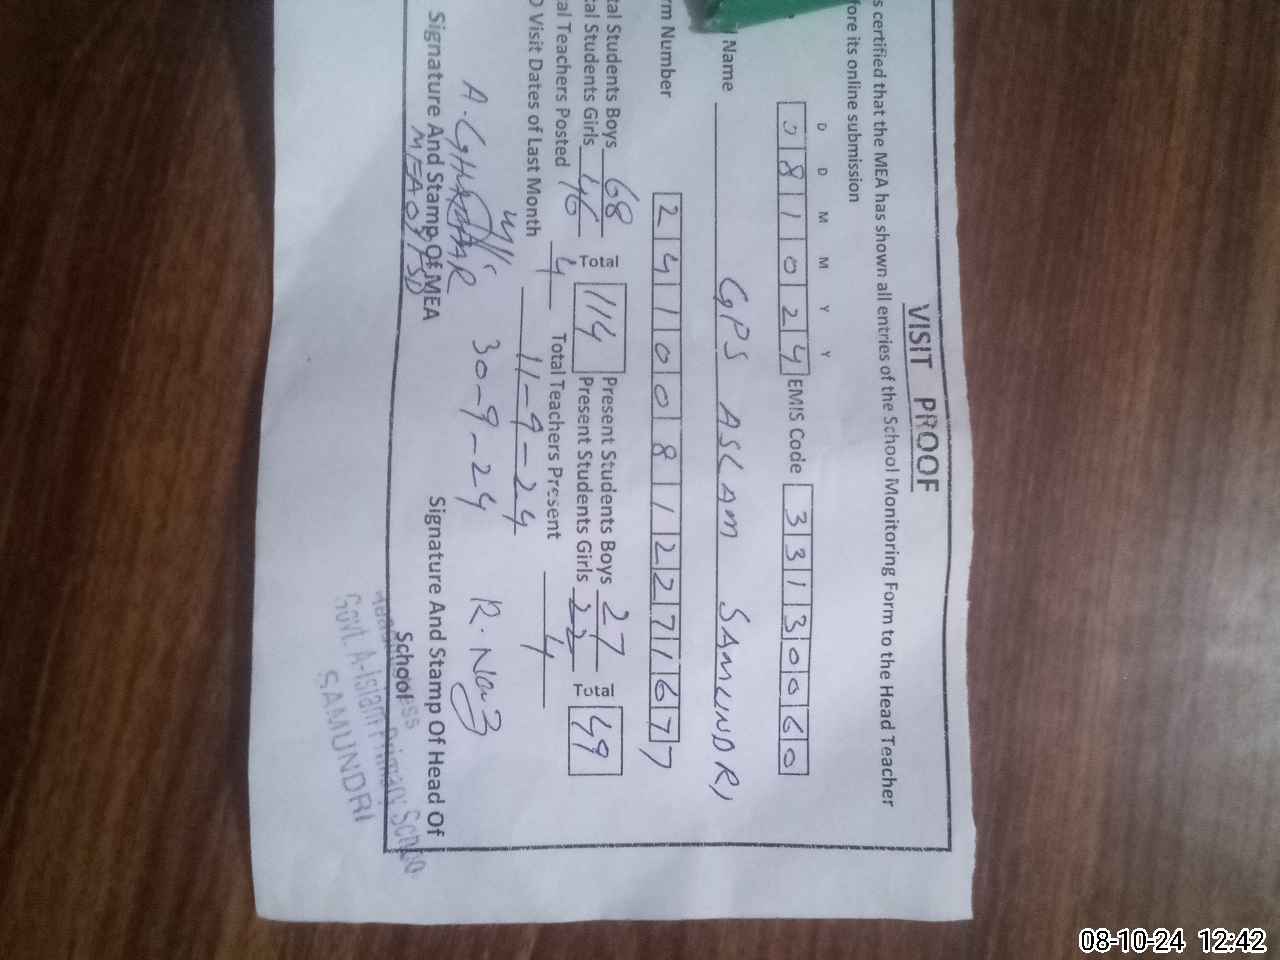 VISIT PROOF
s certified that the MEA has shown all entries of the School Monitoring Form to the Head Teacher
fore its online submission
D D M M Y Y
0 8 1 0 2 4 EMIS Code 3 3 1 3 0 0 6 0
Name GPS ASLAM SAMUNDRI
rm Number 2 4 1 0 0 8 1 2 2 7 1 6 7 7
tal Students Boys 68 Total 114 Present Students Boys 27 Total 49
tal Students Girls 46 Present Students Girls 22
al Teachers Posted 4 Total Teachers Present 4
O Visit Dates of Last Month 11-9-24
30-9-24
Signature And Stamp Of MEA
Signature And Stamp Of Head Of
School
Govt. A-Islam Primary School
SAMUNDRI
08-10-24 12:42